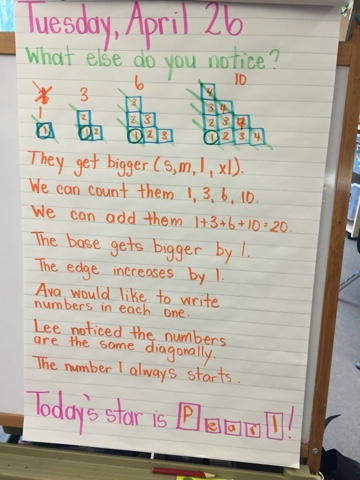 Tuesday, April 26
What else do you notice?
1 3 6 10
4
3 3 4
2 2 3 2 3 4
1 1 2 1 2 3 1 2 3 4
They get bigger (s, m, l, xl).
We can count them 1, 3, 6, 10.
We can add them 1+3+6+10=20.
The base gets bigger by 1.
The edge increases by 1.
Ava would like to write
numbers in each one.
Lee noticed the numbers
are the same diagonally.
The number 1 always starts.
Today's star is Pearl!